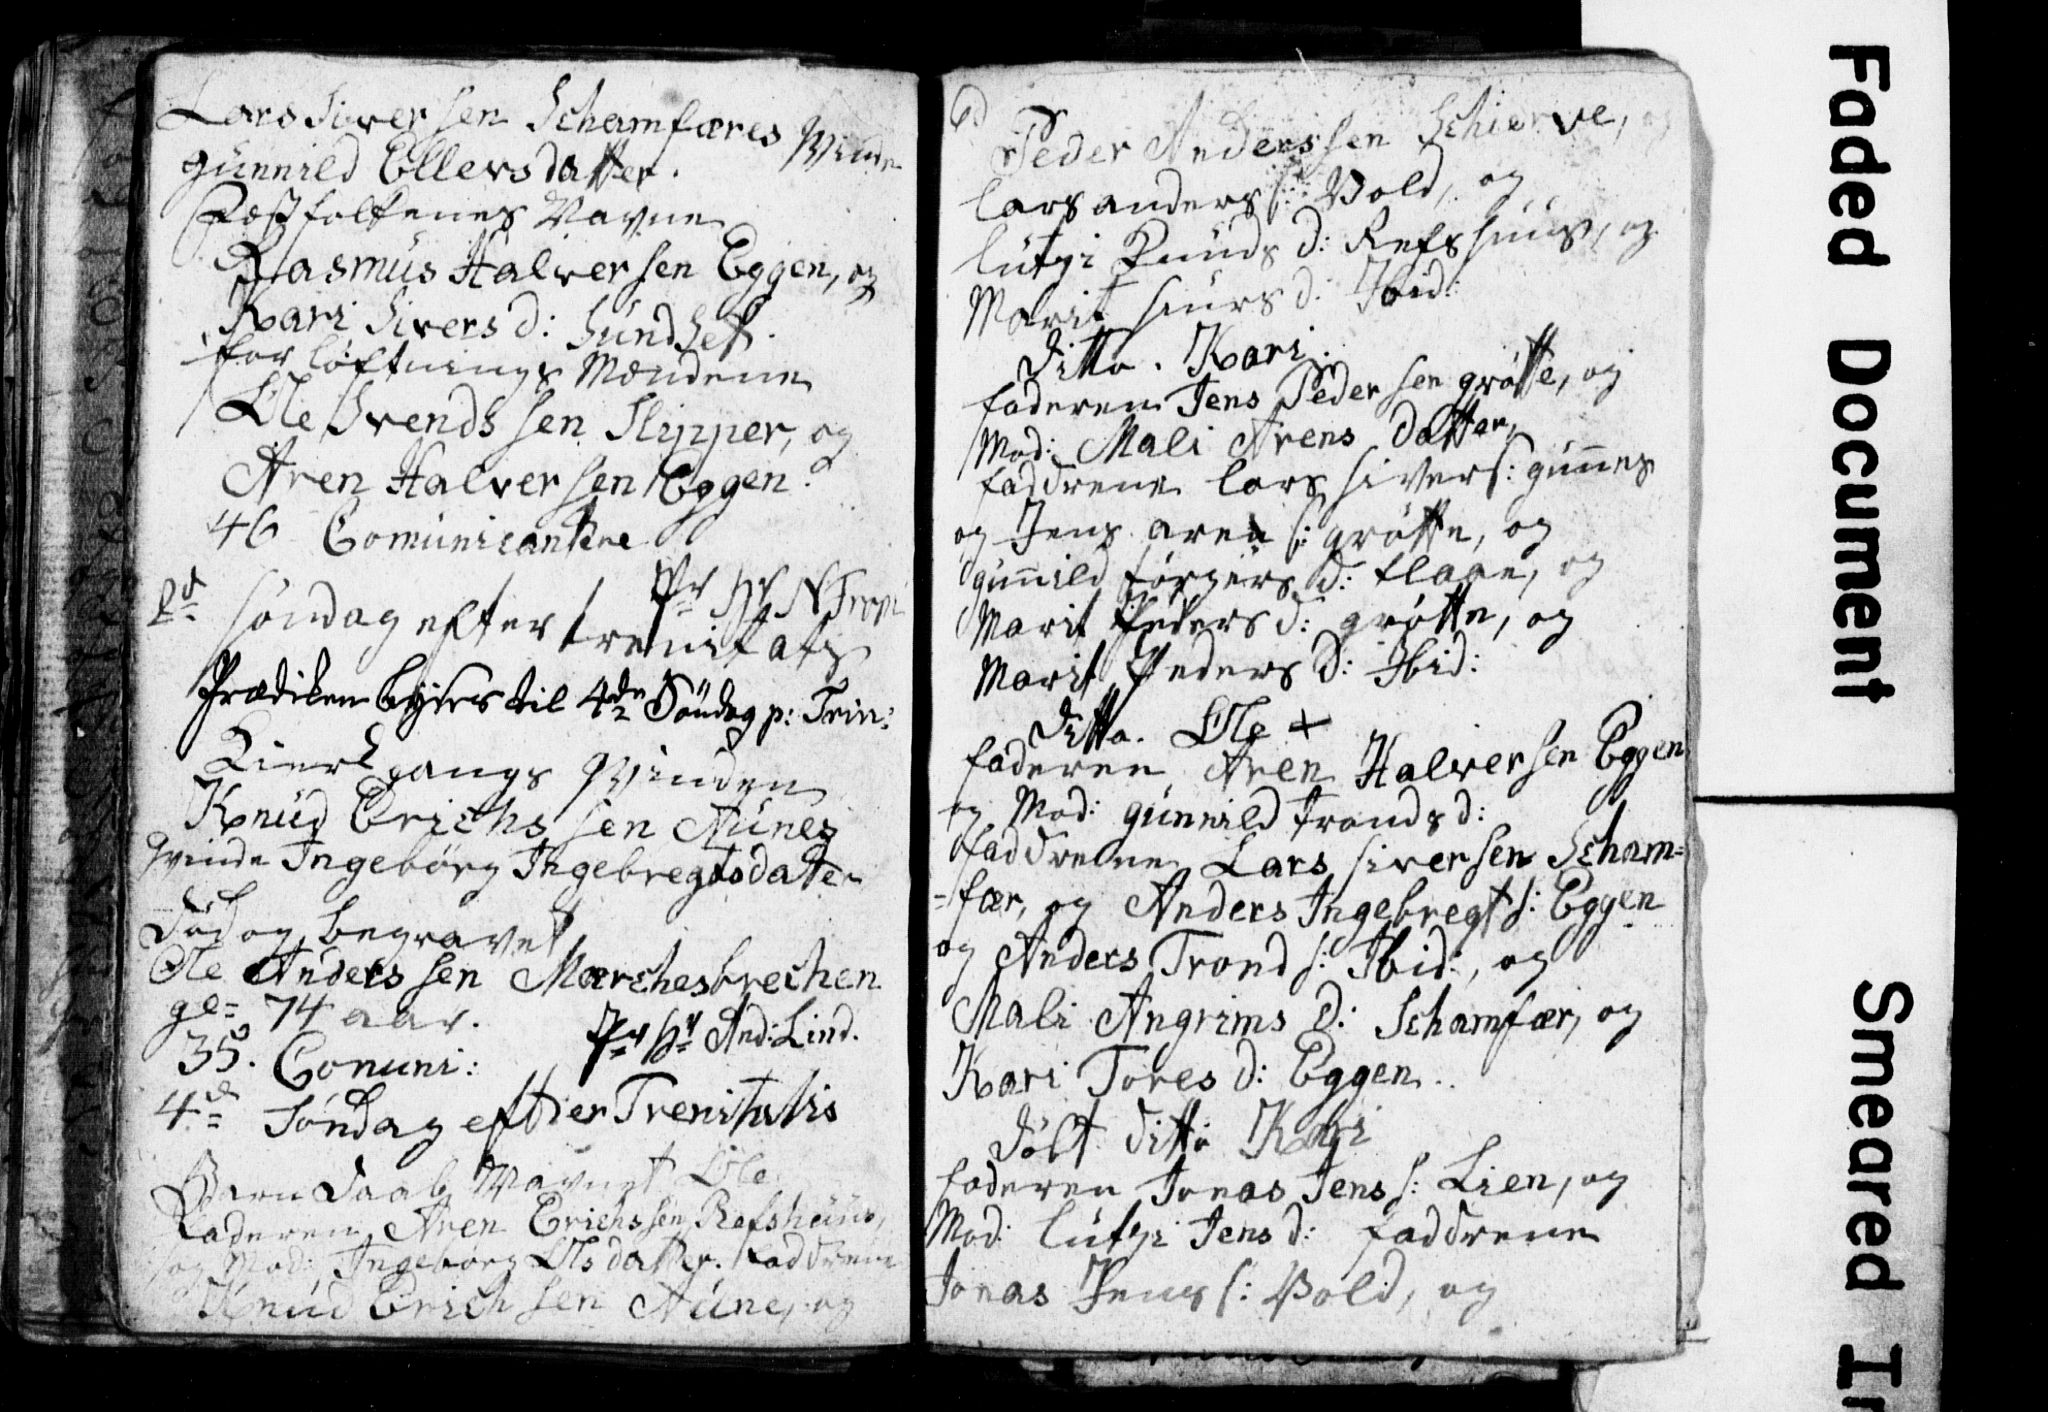 Lars Siversen Schamfæres Qvinde
gunnild Ellersdatter.
Fæstfolkenes Navne
Rasmus Halversen Eggen, og
Kari Sivers d: Sundset.
forløftnings Mændene
Ole Svendssen Slipper, og
Aren Halversen Eggen.
46 Comunicantere
Pr Hr N Trop:
2d søndag efter trenitatis
Prædiken byders til 4de Søndag p: Trin:
Kierkgangs Qvinden
Knud Erichssen Aunes
qvinde Ingebörg Ingebregtsdatter
Död og begravet
Ole Anderssen Marchesbrechen
gl= 74 aar.
Pr Hr And: Lind.
35. Comuni:
4d Søndag eftter Trenitatis
Barn Daab Navnet Ole
Faderen Aren Erichssen Refshuus,
og Mod: Ingeborg Olsdatter. Faddrene
Knud Erichsen Aune, og
Peder Anderssen Schierve, og
Lars anders s: Vold, og
lutzi Knuds d: Refshuus, og
Marit siurs d: Ibid:
Ditto. Kari.
faderen Jens Pedersen grøtte, og
Mod: Mali Arens datter,
faddrene lars sivers: gunnes
og Jens aren s: grøtte, og
gunnild Jörgens d: flaae, og
Marit Peders d: grøtte, og
Marit Peders d: Ibid:
Ditto. Ole +
faderen Aren Halversen Eggen
og Mod: gunnild tronds d:
faddrene Lars siversen Scham=
=fær, og Anders Ingebregt s: Eggen
og Anders Trond s: Ibid:, og
Mali Angrims d: Schamfær, og
Kari Tores d: Eggen.
Döbt ditto Kari
faderen Jonas Jens s: Lien, og
Mod: lutzi Jens d: faddrene
Jonas Jens s: Vold, og
Faded Document
Smeared In